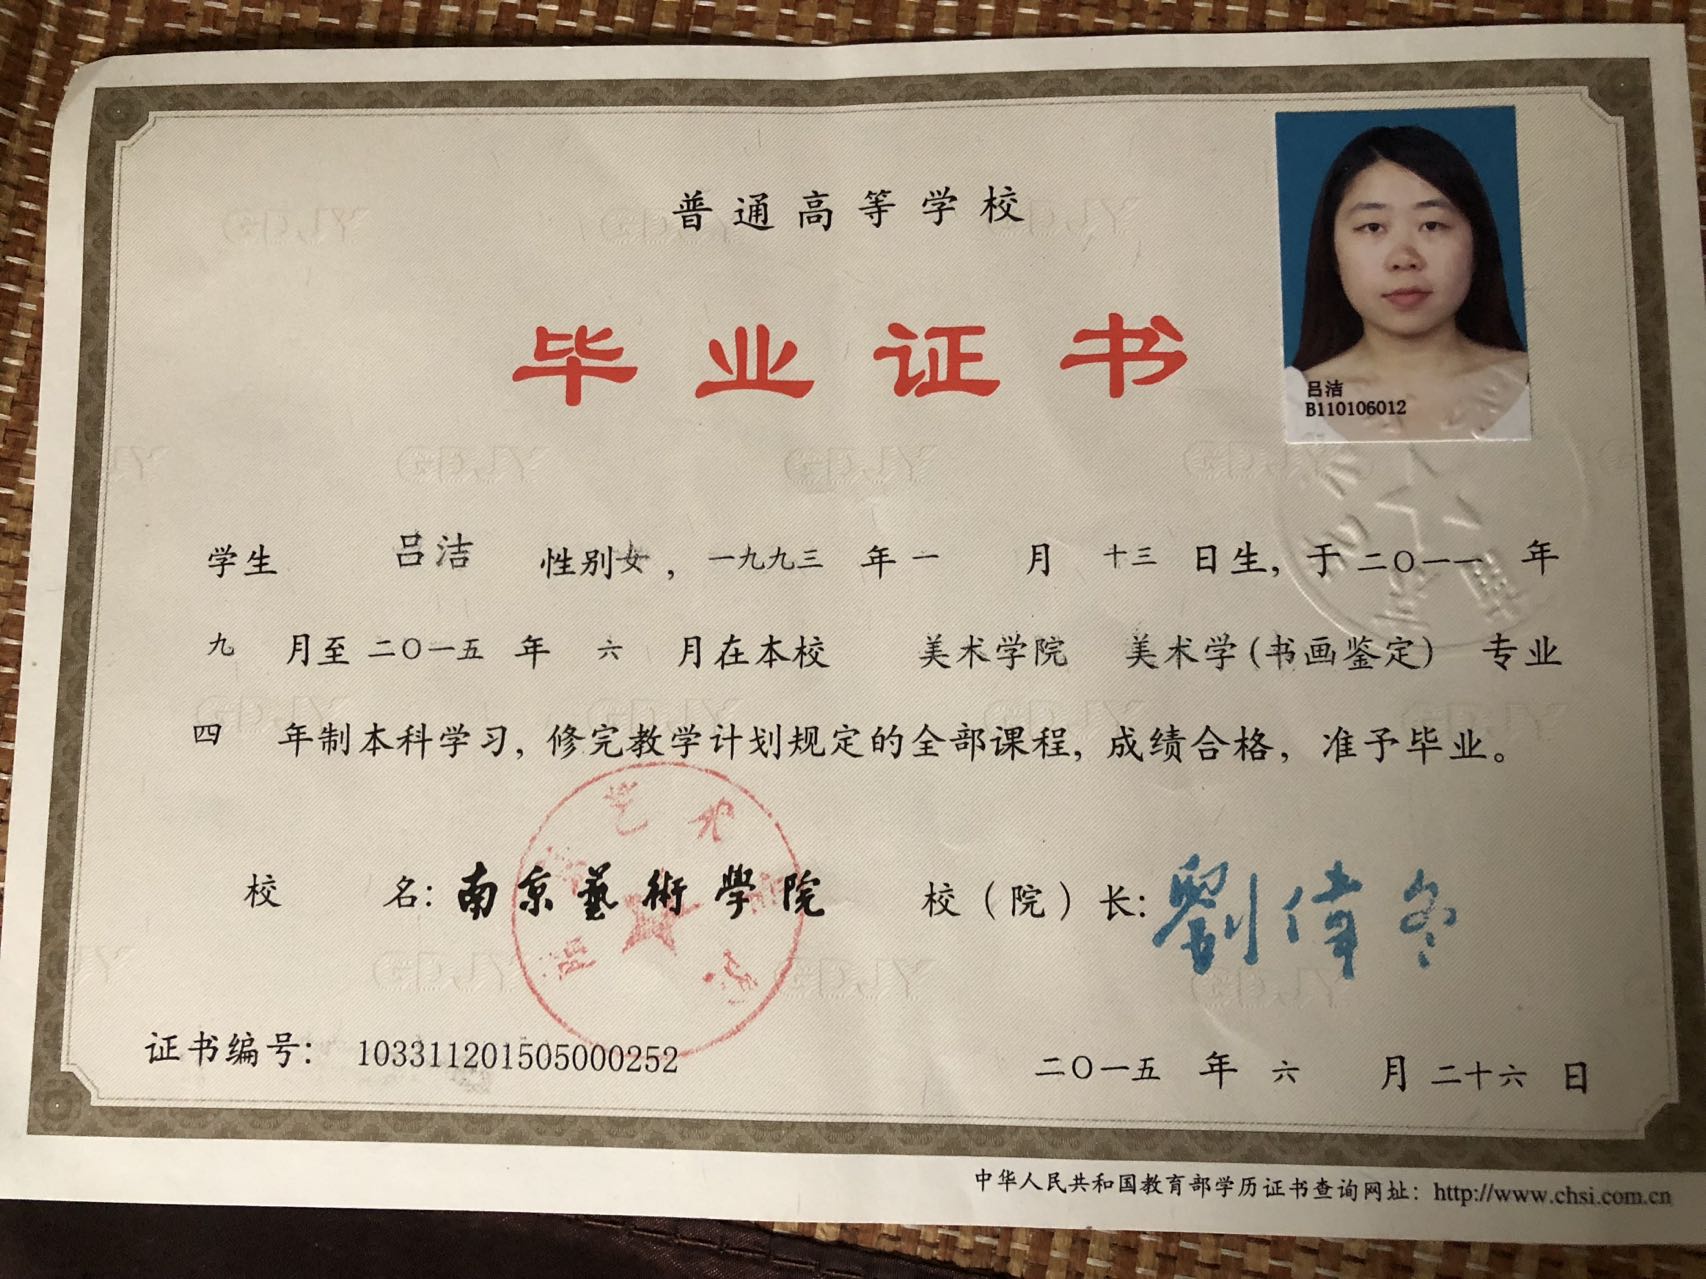 普通高等学校
毕业证书
吕洁
B110106012
学生 吕洁 性别女，一九九三 年 一 月 十三 日生，于 二〇一一 年
九 月至 二〇一五 年 六 月在本校 美术学院 美术学(书画鉴定) 专业
四 年制本科学习，修完教学计划规定的全部课程，成绩合格，准予毕业。
校 名：南京藝術學院 校（院）长：劉偉冬
证书编号： 103311201505000252
二〇一五 年 六 月 二十六 日
中华人民共和国教育部学历证书查询网址：http://www.chsi.com.cn